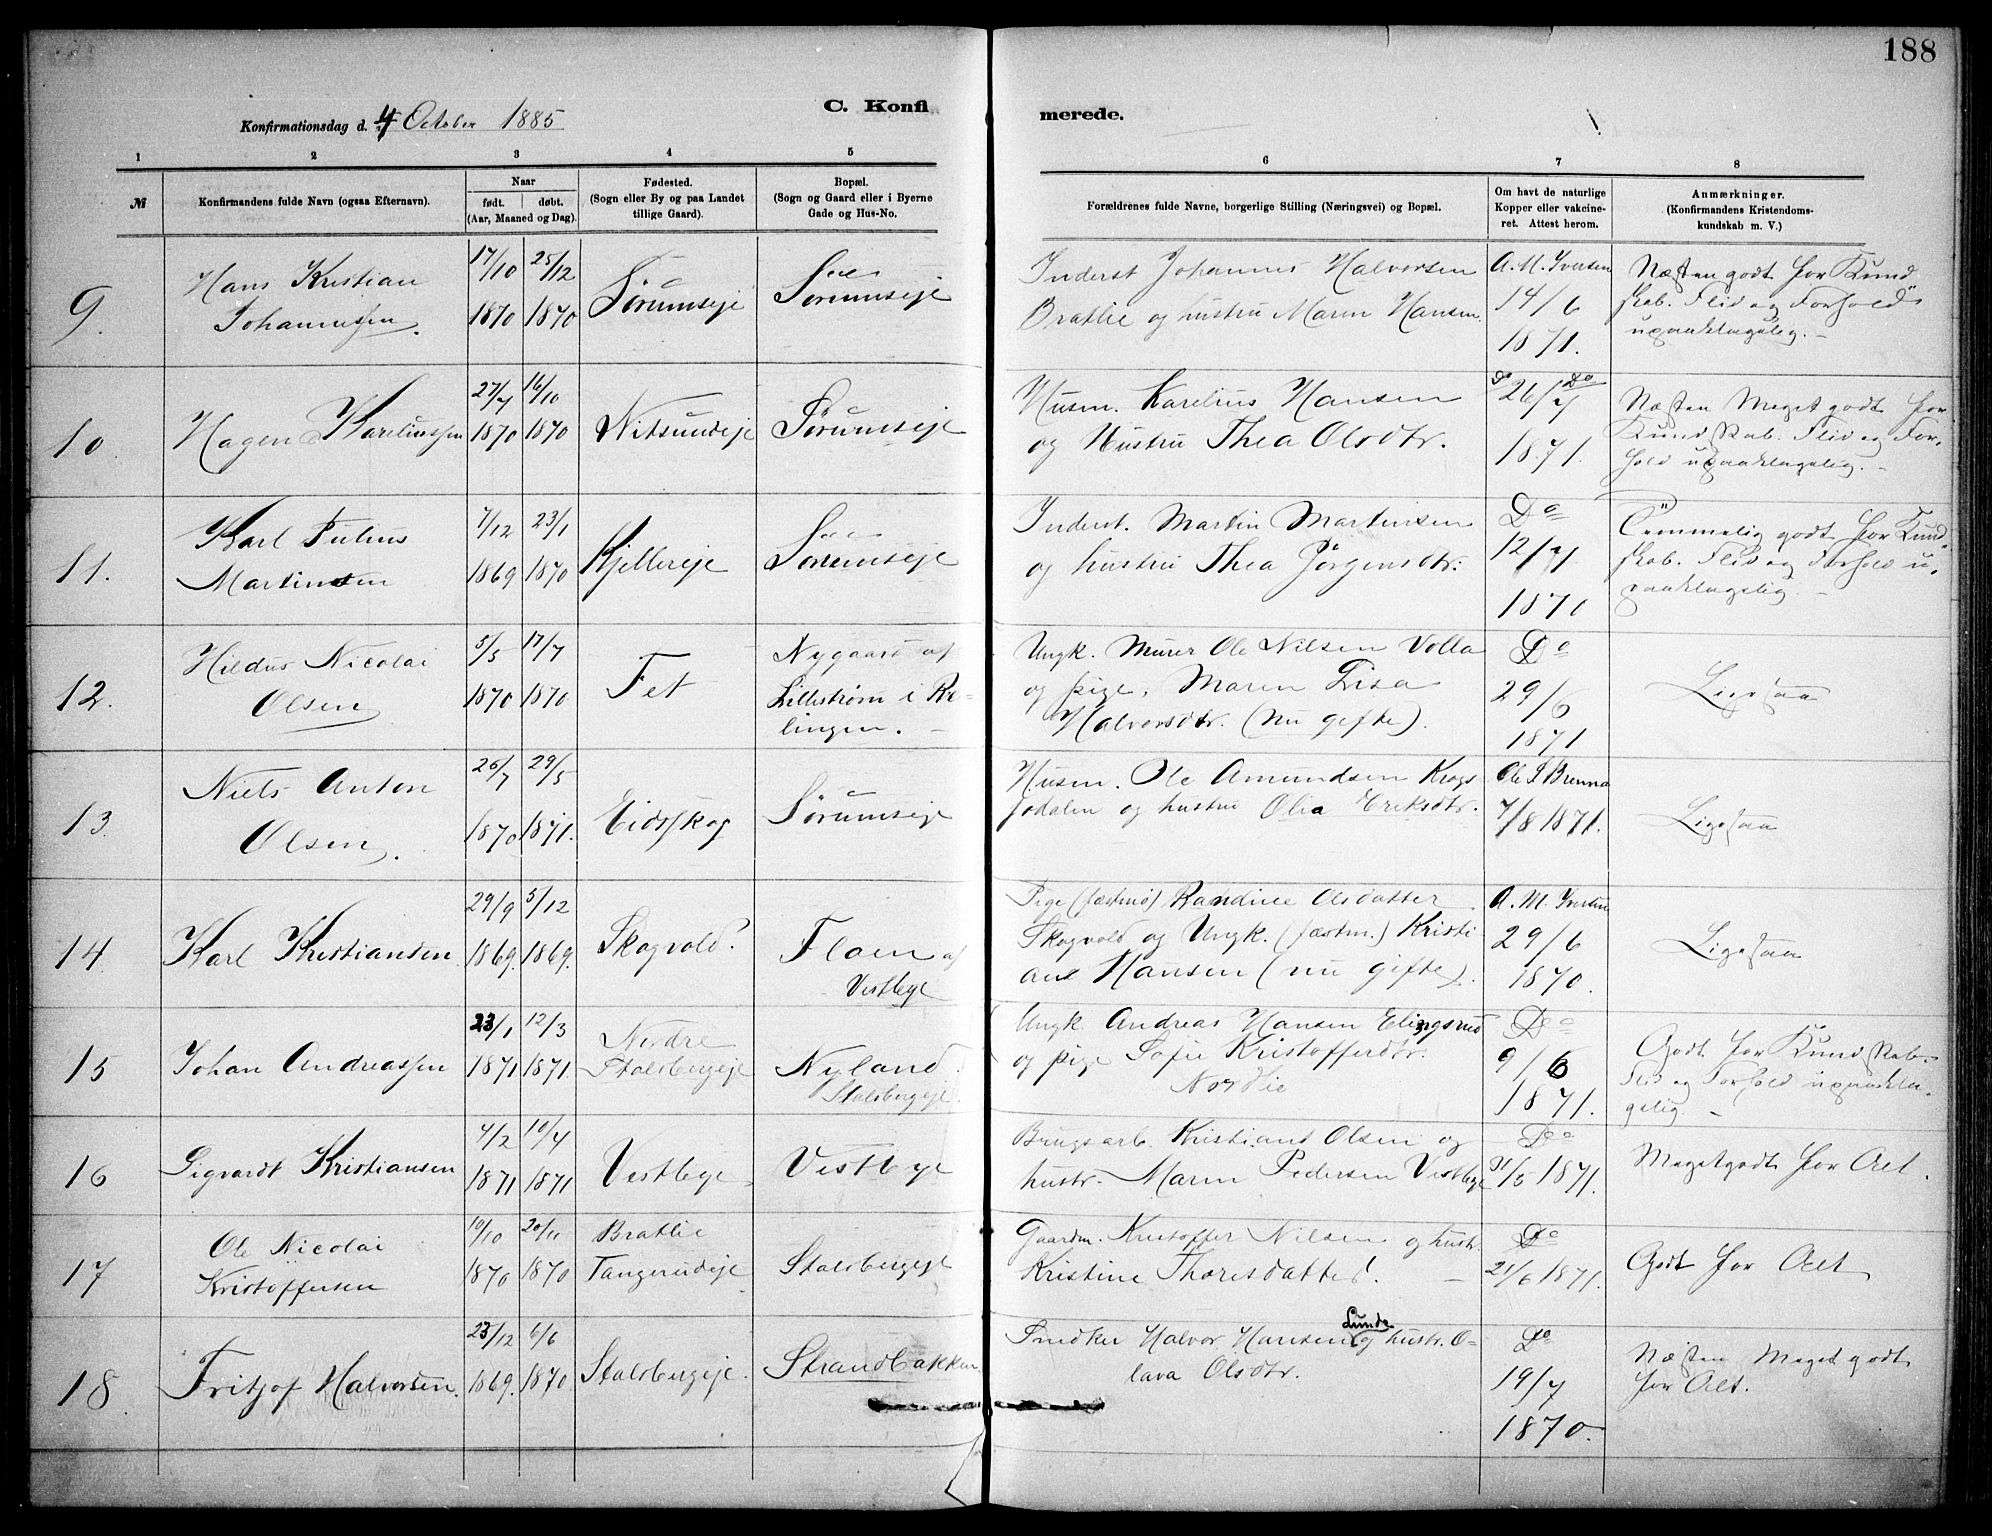 188
C. Konfi
merede.
Konfirmationsdag d. 4 October 1885
1 2 3 4 5 6 7 8
№
Konfirmandens fulde Navn (ogsaa Efternavn).
Naar
født. døbt.
(Aar, Maaned og Dag).
Fødested.
(Sogn eller By og paa Landet
tillige Gaard).
Bopæl.
(Sogn og Gaard eller i Byerne
Gade og Hus-No.
Forældrenes fulde Navne, borgerlige Stilling (Næringsvei) og Bopæl.
Om havt de naturlige
Kopper eller vakcine-
ret. Attest herom.
Anmærkninger.
(Konfirmandens Kristendoms-
kundskab m. V.)
9.
Hans Kristian
Johannessen.
17/10
1870
25/12
1870
Sørumseje
Sørumseje
Inderst Johannes Halvorsen
Bratlie og hustru Maren Hansen.
A. M. Iversen
14/6
1871.
Næsten godt for Kund
skab. Flid og Forhold
upaaklagelig. -
10.
Hagen Kareliussen
27/7
1870
16/10
1870
Nitsundeje
Sørumseje
Husm. Karelius Hansen
og Hustru Thea Olsdtr.
Do
26/7
1871.
Næsten Meget godt for
Kundskab. Flid og For-
hold upaaklagelig. -
11.
Karl Julius
Martinsen
7/12
1869
23/1
1870
Kjellereje
Sørumseje
Inderst. Martin Martinsen
og hustru Thea Jørgensdtr.
Do
12/7
1871
Temmelig godt for Kund-
skab. Flid og Forhold u-
paaklagelig. -
12.
Hildus Nicolai
Olsen
5/5
1870
17/7
1870
Fet
Nygaard af
Lillestrøm i Re-
lingen. -
Ungk. Murer Ole Nilsen Volla
og pige, Maren Lisa
Halvorsdtr. (nu gifte).
Do
29/6
1871
Ligesaa
13.
Niels Anton
Olsen.
26/7
1870
29/5
1871.
Eidsskog
Sørumseje
Husm. Ole Amundsen Krogs
dalen og hustru Olia Eriksdtr.
Ole S Brenna
7/8 1871.
Ligesaa
14.
Karl Kristiansen
29/9
1869.
5/12
1869.
Skogvold?
Floen af
Vestbye
Pige (fæstmø) Randine Olsdatter
Skogvold og Ungk. (fæstm.) Kristi
an Hansen (nu gifte).
A. M. Iversen
29/6
1870.
Ligesaa
15
Johan Andreassen
23/1
1871
12/3
1871.
Nedre
Stalsbergeje
Nyland
Stalsbergeje.
Ungk. Andreas Hansen Elingsrud
og pige Sofie Kristofferdtr.
Nordlie
Do
9/6
1871.
Godt for Kundskab.
Flid og Forhold upaakla-
gelig. -
16
Sigvardt Kristiansen
4/2
1871
10/4
1871
Vestbye
Vestbye
Brugsarb. Kristians Olsen og
hustr. Maren Pedersen Vestbye
Do
31/5 1871.
Meget godt for Alt.
17
Ole Nicolai
Kristoffersen
10/10
1870
20/11
1870
Bratlie
Tangerudeje
Stalsbergeje
Gaardm. Kristoffer Nilsen og hustr.
Kristine Thoresdatter.
Do
21/6 1871.
Godt for Alt
18
Fritjof Halvorsen.
23/12
1869.
6/6
1870
Stalsbergeje.
Strandbakken
Snedker Halvor Hansen Lunde og hustr. O-
lava Olsdtr.
Do
19/7
1870.
Næsten Meget godt
for Alt.